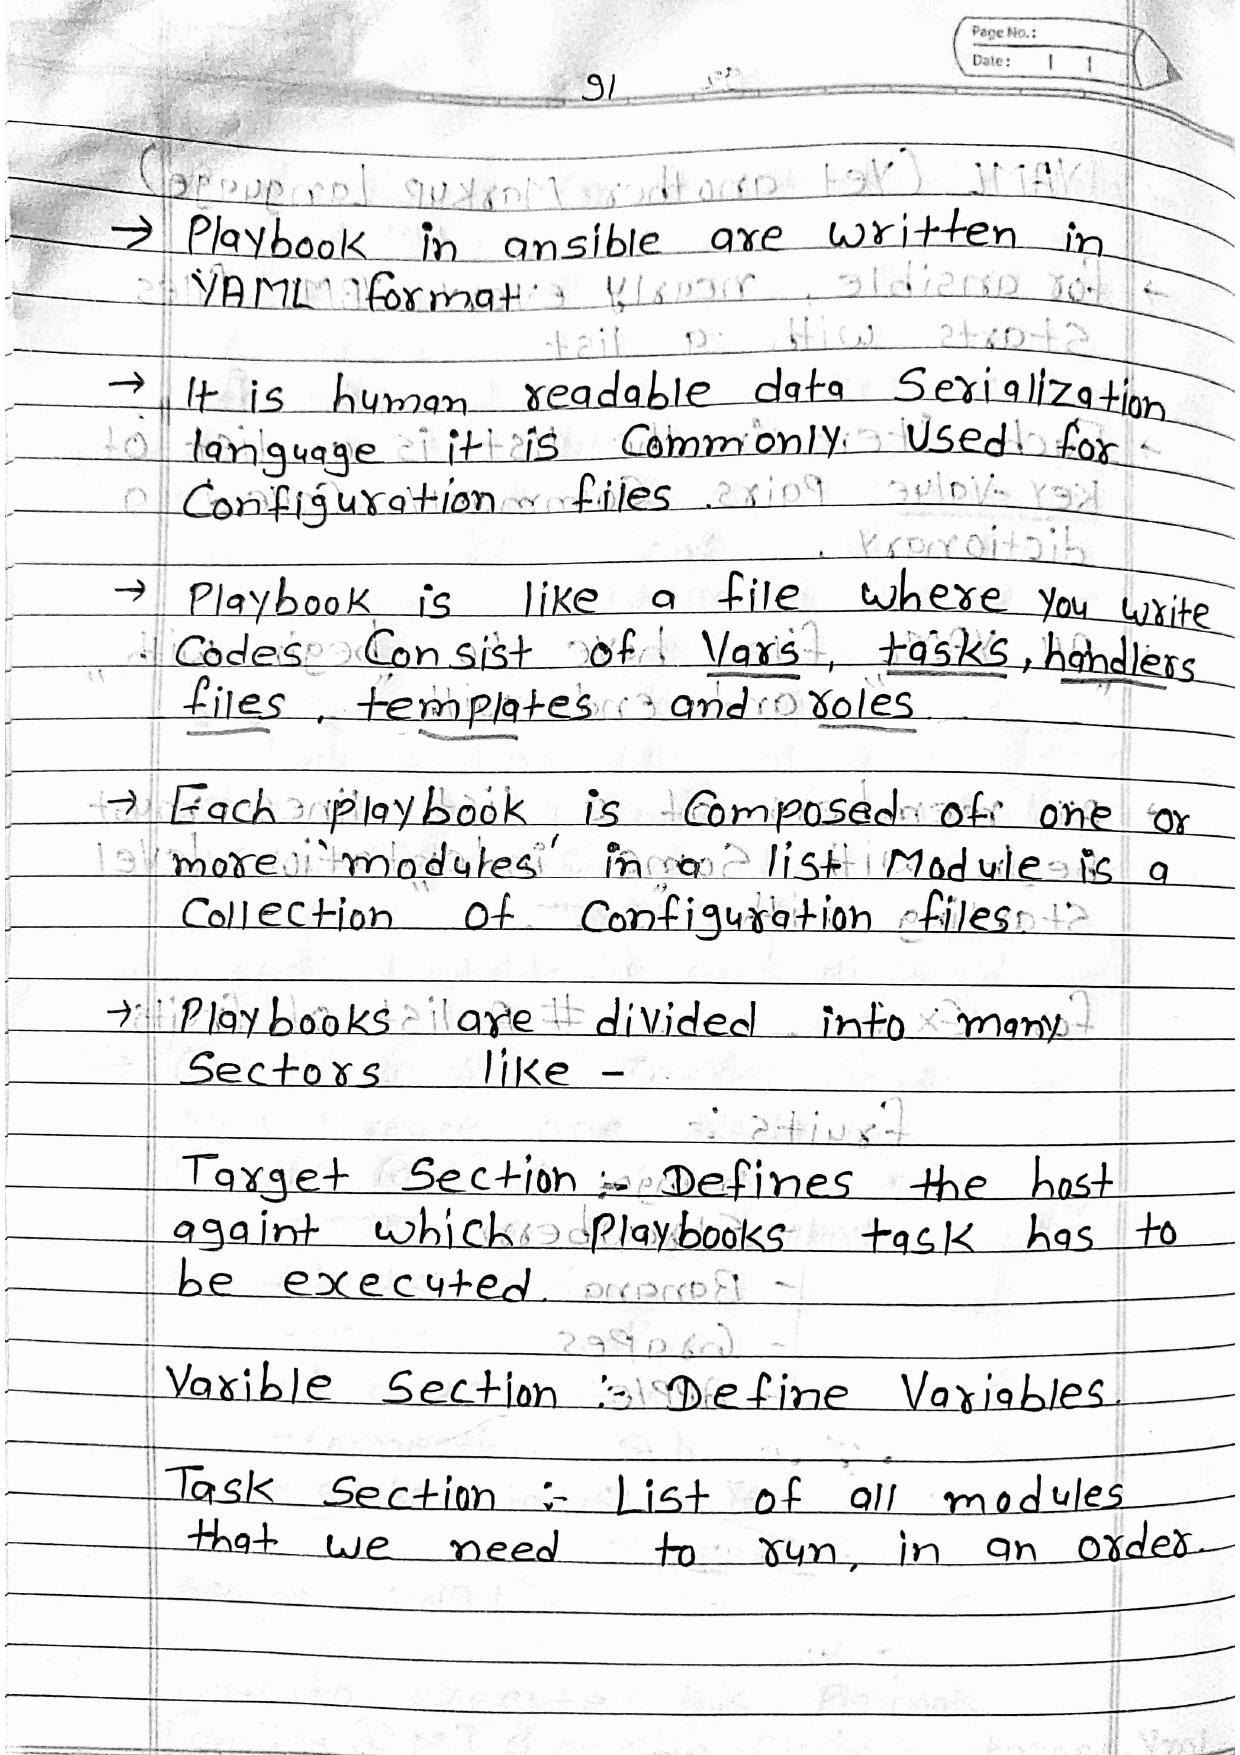 Page No.:
Date:
91
→ Playbook in ansible are written in
YAML format.
→ It is human readable data Serialization
language it is Commonly Used for
Configuration files.
→ Playbook is like a file where you write
Codes Consist of Vars, tasks, handlers
files, templates and roles
→ Each playbook is Composed of one or
more 'modules' in a list Module is a
Collection of Configuration files.
→ Playbooks are divided into many
Sectors like -
Target Section :- Defines the host
againt which Playbooks task has to
be executed.
Varible Section :- Define Variables.
Task Section :- List of all modules
that we need to run, in an order.